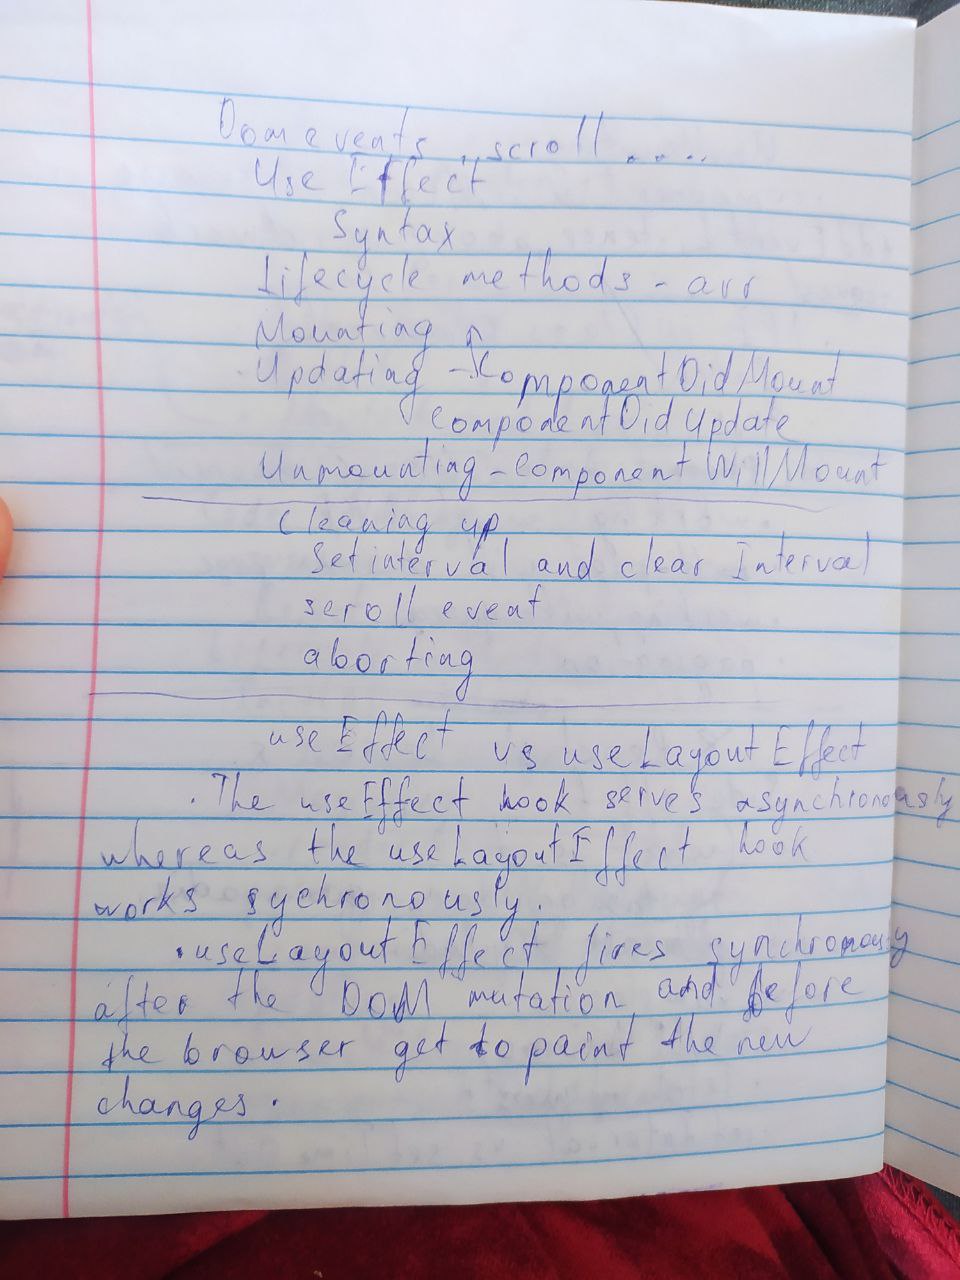 Dom events, scroll ....
Use Effect
Syntax
Lifecycle methods - arr
Mounting
Updating - ComponentDidMount
ComponentDidUpdate
Unmounting - Component WillMount
Cleaning up
Set interval and clear Interval
scroll event
aborting
useEffect vs useLayoutEffect
. The useEffect hook serves asynchronously
whereas the useLayoutEffect hook
works sychronously.
. useLayoutEffect fires synchronously
after the DOM mutation and before
the browser get to paint the new
changes.